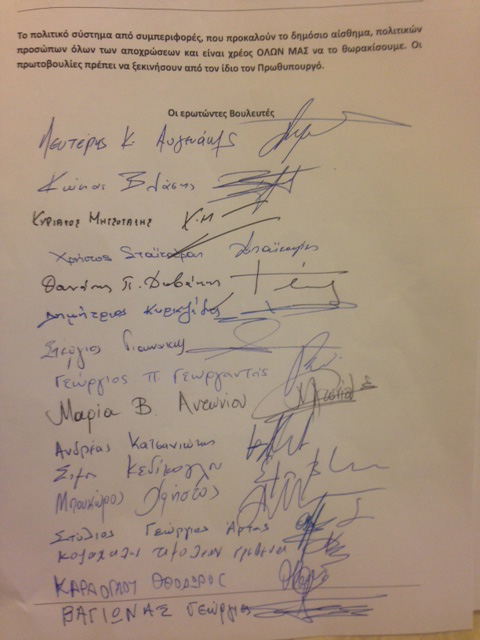 Το πολιτικό σύστημα από συμπεριφορές, που προκαλούν το δημόσιο αίσθημα, πολιτικών
προσώπων όλων των αποχρώσεων και είναι χρέος ΟΛΩΝ ΜΑΣ να το θωρακίσουμε. Οι
πρωτοβουλίες πρέπει να ξεκινήσουν από τον ίδιο τον Πρωθυπουργό.
Οι ερωτώντες Βουλευτές
Λευτέρης Κ. Αυγενάκης
Κώστας Βλάσης
Κυριάκος Μητσοτάκης Κ.Μ
Χρήστος Σταϊκούρας
Θανάσης Π. Δαβάκης
Δημήτριος Κυριαζίδης
Στέργιος Γιαννάκης
Γεώργιος Π. Γεωργαντάς
Μαρία Β. Αντωνίου
Ανδρέας Κατσανιώτης
Σίμος Κεδίκογλου
Μπουκώρος Χρήστος
Στύλιος Γεώργιος Άρτας
ΚΑΡΑΟΓΛΟΥ ΘΕΟΔΩΡΟΣ
ΒΑΓΙΩΝΑΣ Γεώργιος